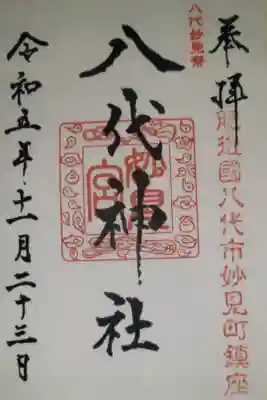 奉拝
肥後國八代市妙見町鎮座
八代妙見祭
八代神社
妙見宮
令和五年十一月二十三日